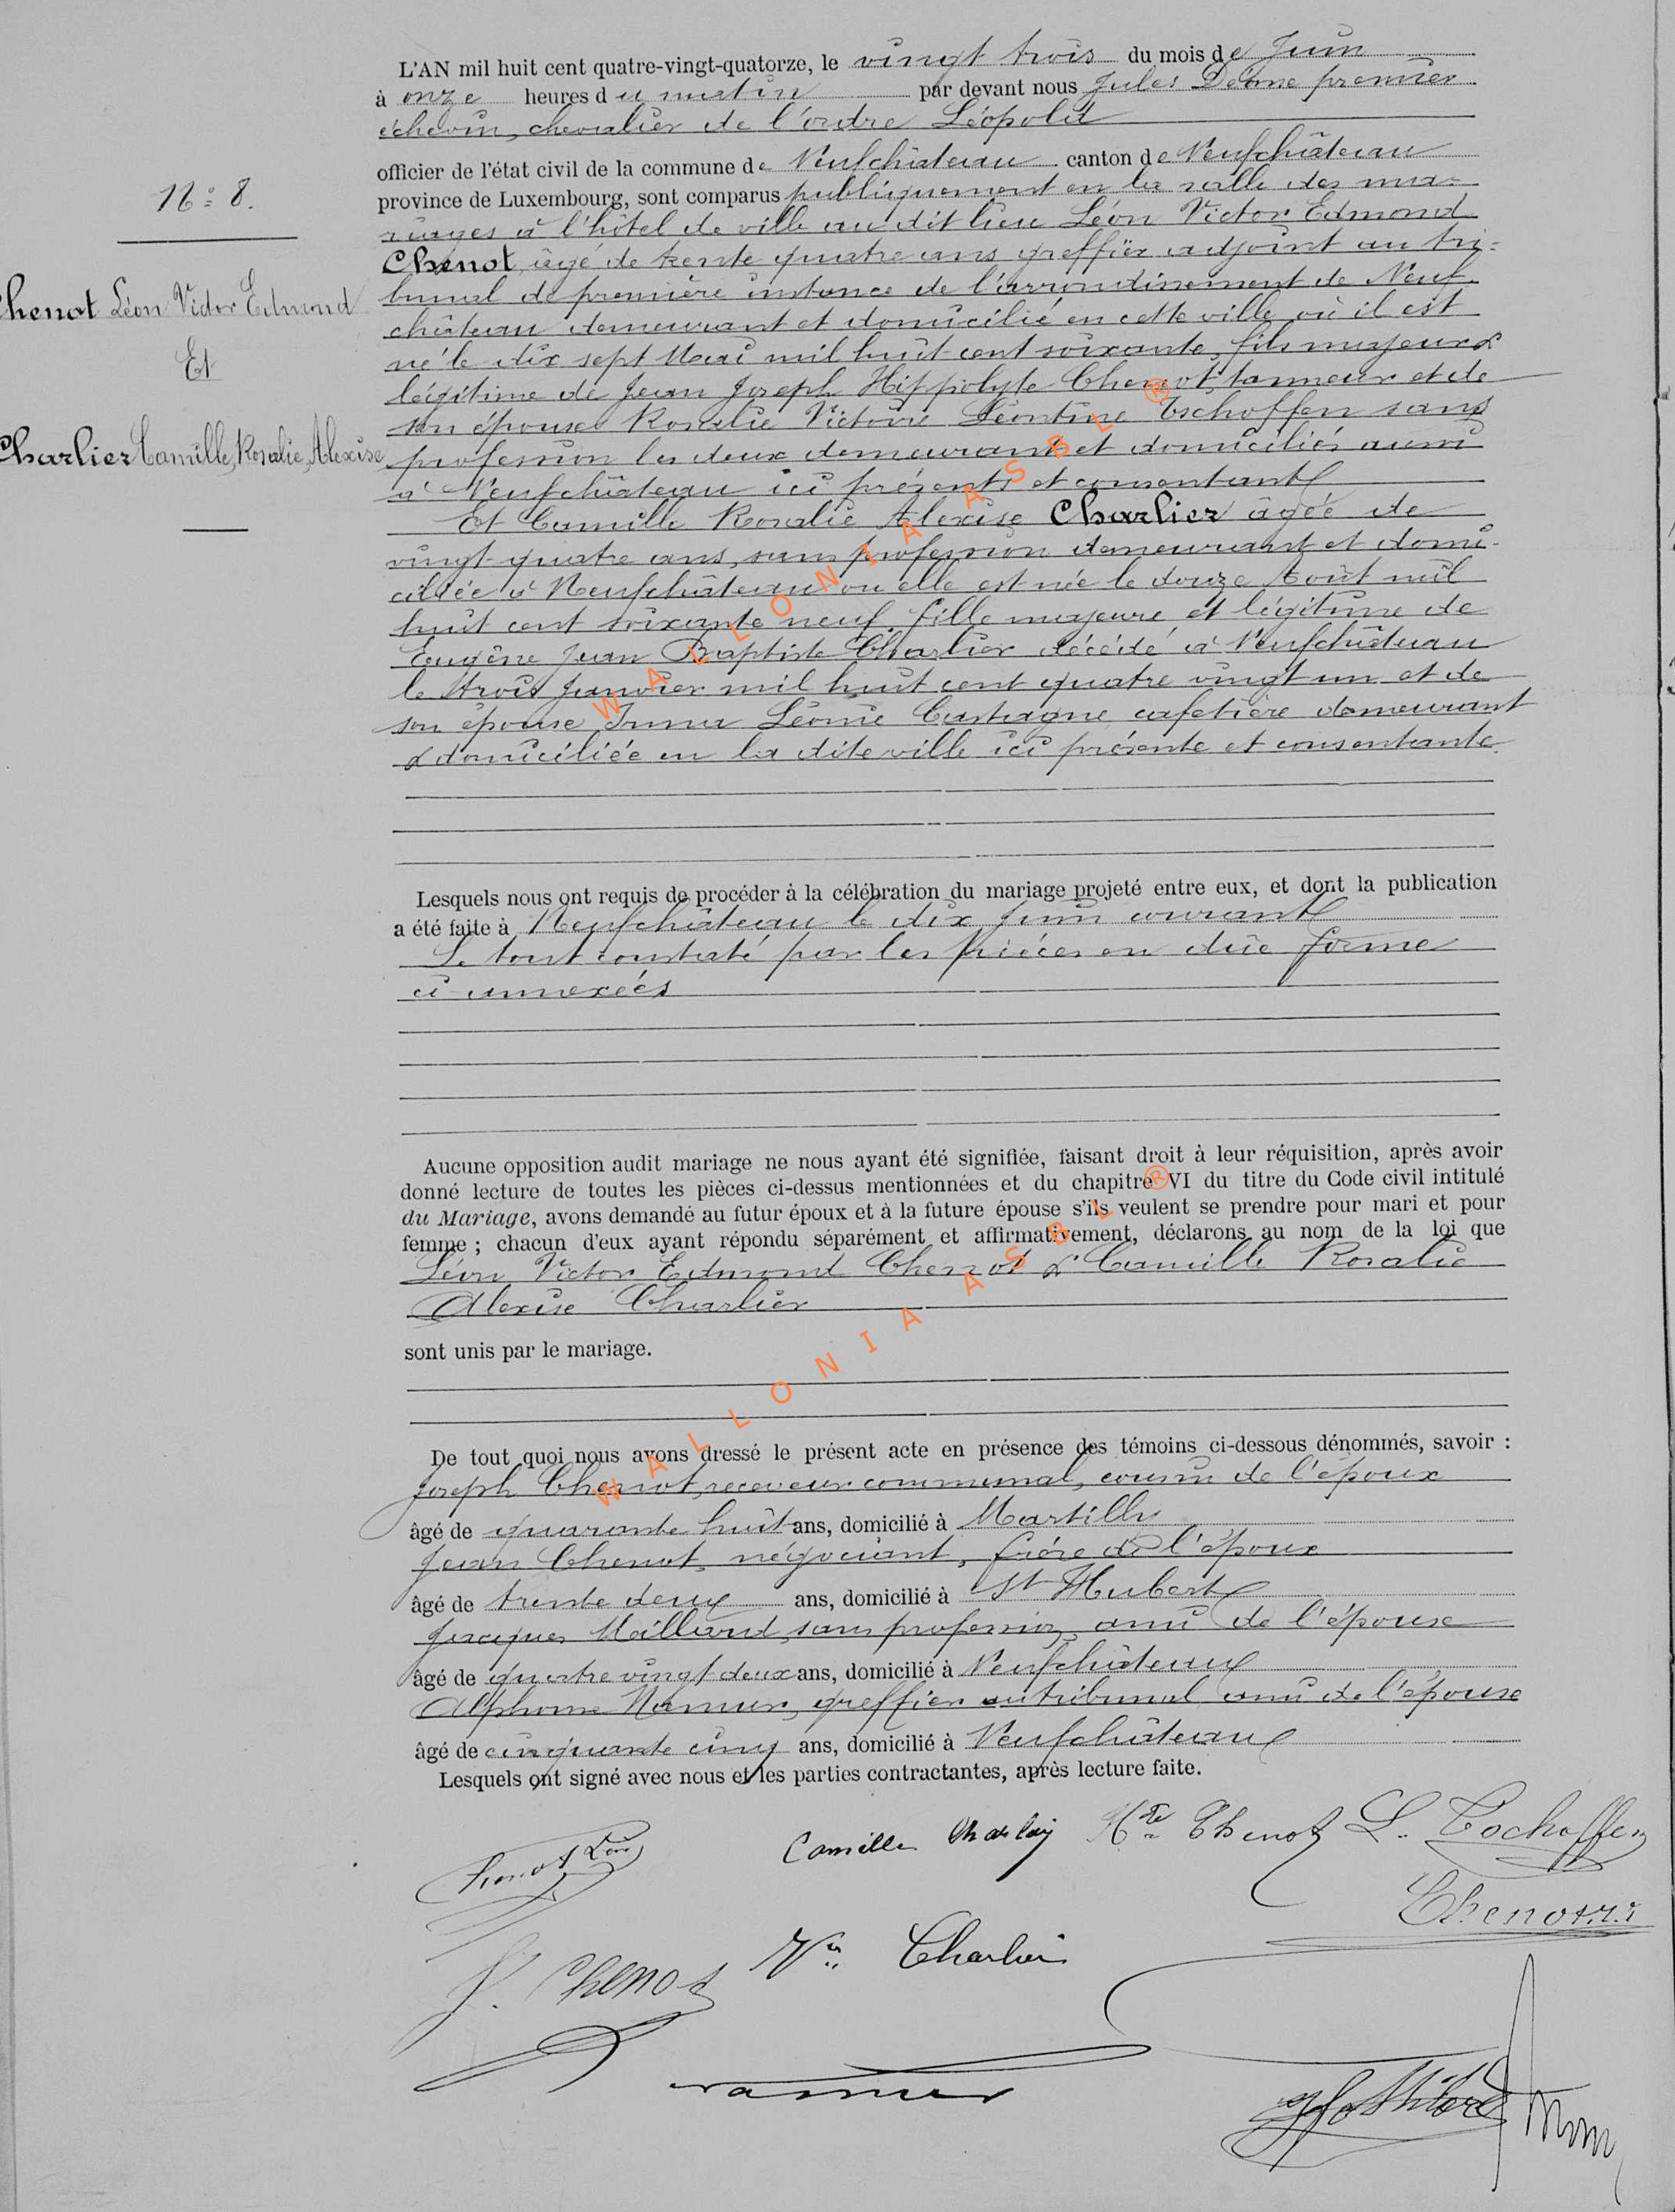 N° 8.
Chenot Léon Victor Edmond
Et
Charlier Camille, Rosalie, Alexise
L'AN mil huit cent quatre-vingt-quatorze, le vingt trois du mois de Juin
à onze heures du matin par devant nous Jules premier
échevin, chevalier de l'ordre Léopold
officier de l'état civil de la commune de Neufchâteau canton de Neufchâteau
province de Luxembourg, sont comparus publiquement en la salle des ma-
riages à l'hôtel de ville au dit lieu Léon Victor Edmond
Chenot, âgé de trente quatre ans greffier adjoint au tri-
bunal de première instance de l'arrondissement de Neuf-
château demeurant et domicilié en cette ville où il est
né le dix sept Mai mil huit cent soixante, fils majeur &
légitime de Jean Joseph Hippolyte Chenot, tanneur et de
son épouse Rosalie Victoire Léontine Tschoffen sans
profession les deux demeurant et domiciliés aussi
à Neufchâteau ici présents et consentant
Et Camille Rosalie Alexise Charlier âgée de
vingt quatre ans, sans profession demeurant et domi-
ciliée à Neufchâteau où elle est née le douze Août mil
huit cent soixante neuf, fille majeure et légitime de
Eugène Jean Baptiste Charlier décédé à Neufchâteau
le trois Janvier mil huit cent quatre vingt un et de
son épouse Irma Léonie Castagne cafetière demeurant
& domiciliée en la dite ville ici présente et consentante.
Lesquels nous ont requis de procéder à la célébration du mariage projeté entre eux, et dont la publication
a été faite à Neufchâteau le dix Juin courant
Le tout constaté par les pièces en dûe forme
ci-annexées
Aucune opposition audit mariage ne nous ayant été signifiée, faisant droit à leur réquisition, après avoir
donné lecture de toutes les pièces ci-dessus mentionnées et du chapitre VI du titre du Code civil intitulé
du Mariage, avons demandé au futur époux et à la future épouse s'ils veulent se prendre pour mari et pour
femme ; chacun d'eux ayant répondu séparément et affirmativement, déclarons au nom de la loi que
Léon Victor Edmond Chenot & Camille Rosalie
Alexise Charlier
sont unis par le mariage.
De tout quoi nous avons dressé le présent acte en présence des témoins ci-dessous dénommés, savoir :
Joseph Chenot, receveur communal, cousin de l'époux
âgé de quarante huit ans, domicilié à Martilly
Jean Chenot, négociant, frère de l'époux
âgé de trente deux ans, domicilié à St Hubert
Jacques Maillard, sans profession, ami de l'épouse
âgé de quatre vingt deux ans, domicilié à Neufchâteau
Alphonse Namur, greffier au tribunal ami de l'épouse
âgé de cinquante cinq ans, domicilié à Neufchâteau
Lesquels ont signé avec nous et les parties contractantes, après lecture faite.
Chenot Léon Camille Charlier Hte Chenot L. Tschoffen
Chenot
J. Chenot Ve Charlier
Namur
WALLONIA ASBL ®
WALLONIA ASBL ®